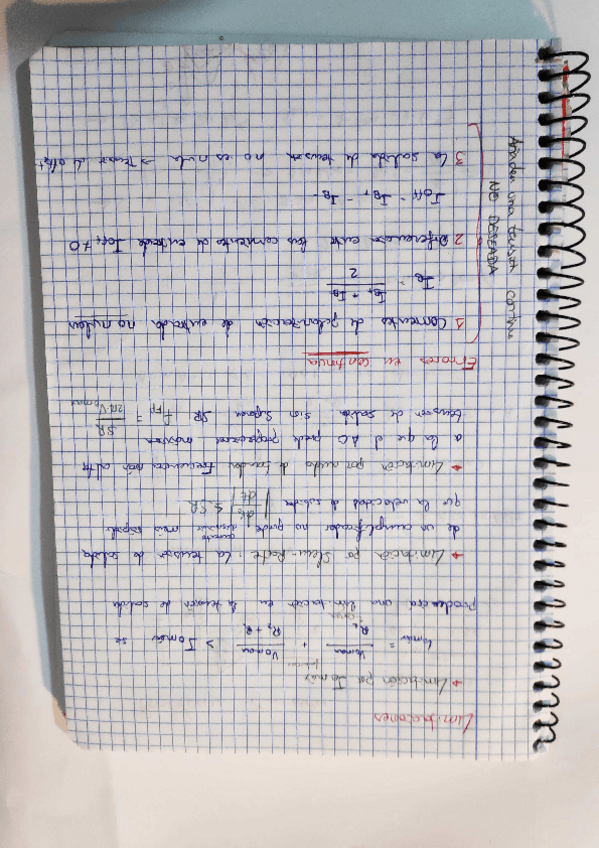 Limitaciones
→ Limitación por Iomáx
Iomáx = Vomax / RL + Vomax / R2 + R1 > Iomáx se
carga
producirá una limitación en la tensión de salida
→ Limitación por Slew-Rate: La tensión de salida
de un amplificador no puede aumentar disminuir más rápido
que la velocidad de subida |dVo/dt| ≤ SR
→ Limitación por ancho de banda: Frecuencia más alta
a la que el AO puede proporcionar máxima
tensión de salida sin superar SR fFP = SR / 2π·Vpmax
Errores en continua
1 Corrientes de polarización de entrada no nulas
IB = IB+ + IB- / 2
2 Diferencia entre las corrientes de entrada Ioff ≠ 0
Ioff = IB+ - IB-
3 La salida de tensión no es nula → tensión de offset
Añaden una tensión continua
NO DESEADA